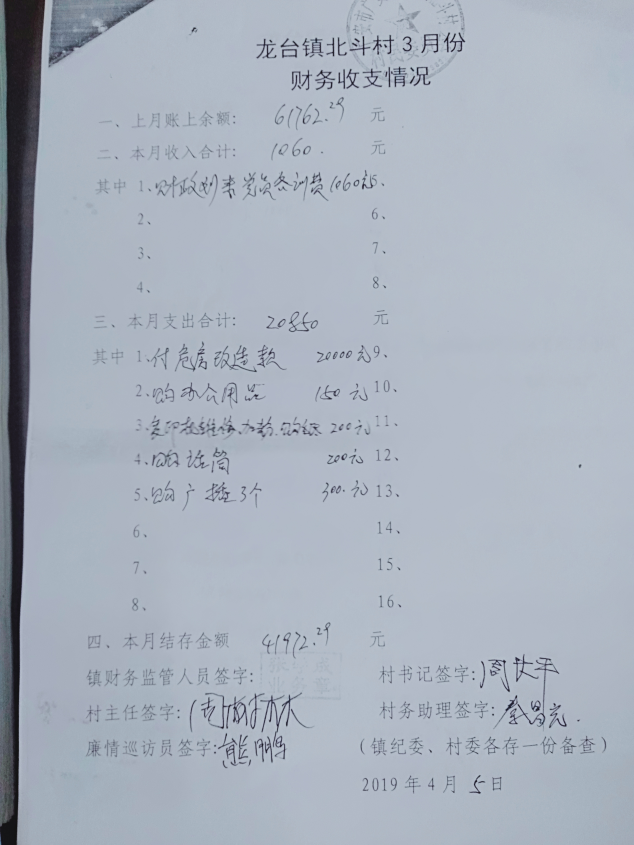 龙台镇北斗村3月份
财务收支情况
一、上月账上余额: 61762.29 元
二、本月收入合计: 1060. 元
其中 1、财政划来党员培训费1060元 5、
2、 6、
3、 7、
4、 8、
三、本月支出合计: 20850 元
其中 1、付危房改造款 20000元 9、
2、购办公用品 150元 10、
3、复印机维修、加粉、购纸 200元 11、
4、购话筒 200元 12、
5、购广播3个 300.元 13、
6、 14、
7、 15、
8、 16、
四、本月结存金额 41972.29 元
镇财务监管人员签字: 村书记签字:
村主任签字: 村务助理签字:秦昌元.
廉情巡访员签字:熊鹏 (镇纪委、村委各存一份备查)
2019年4月5日